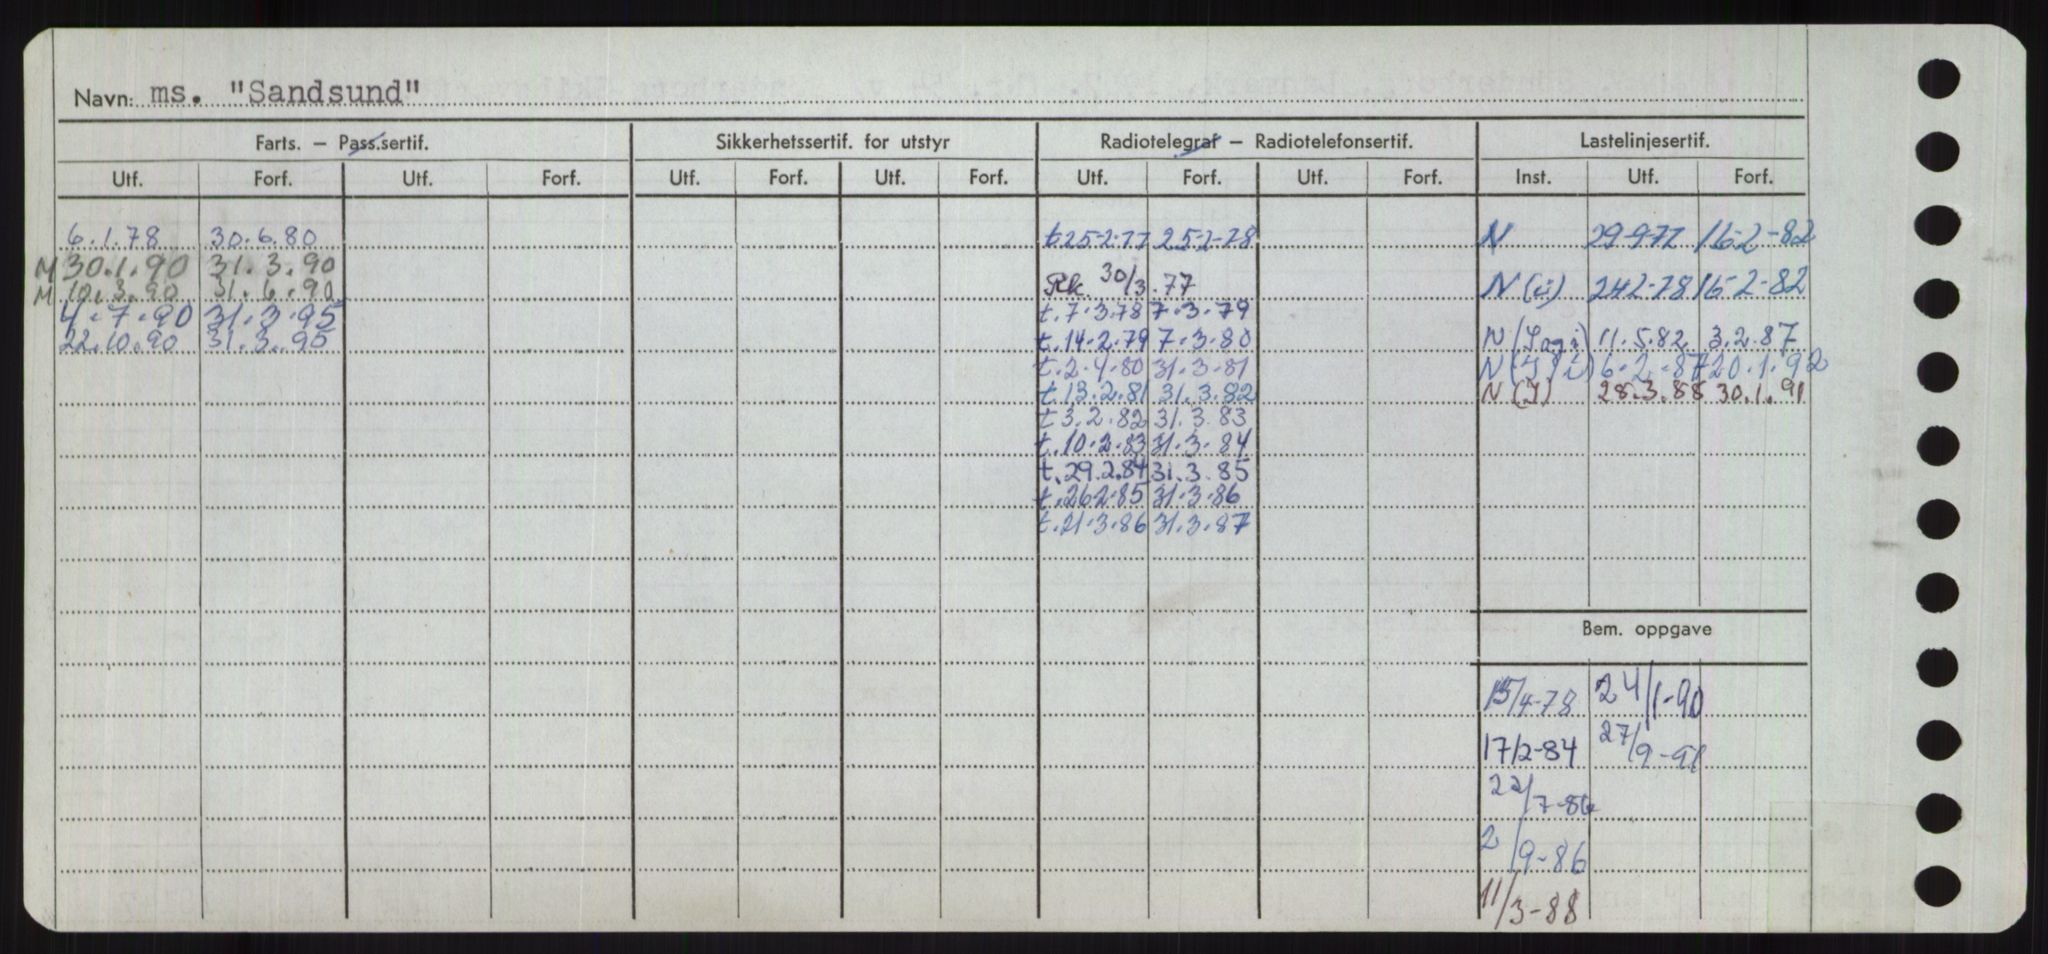 Navn: ms. "Sandsund"
Farts. — Pass.sertif. Sikkerhetssertif. for utstyr Radiotelegraf — Radiotelefonsertif. Lastelinjesertif.
Utf. Forf. Utf. Forf. Utf. Forf. Utf. Forf. Utf. Forf. Utf. Forf. Inst. Utf. Forf.
6.1.78 30.6.80 t 25-2-77 25-2-78 N 29-9-77 16-2-82
M 30.1.90 31.3.90
M 10.3.90 31.6.90 Rk. 30/3.77 N (ü) 242-78 16-2-82
4.7.90 31.3.95 t.7.3.78 7.3.79
22.10.90 31.3.95 t.14.2.79 7.3.80 N 11.5.82 3.2.87
t.2.4.80 31.3.81 N 6.2.87 20.1.92
t.13.2.81 31.3.82 N (I) 28.3.88 30.1.91
t 3.2.82 31.3.83
t.10.2.83 31.3.84
t.29.2.84 31.3.85
t.26.2.85 31.3.86
t.21.3.86 31.3.87
Bem. oppgave
15/4-78 24/1-90
17/2-84 27/9-91
22/7-86
2/9-86
11/3-88